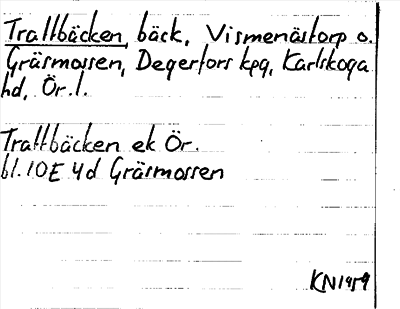 Trattbäcken, bäck, Vismenästorp o.
Gräsmossen, Degerfors kpg, Karlskoga
hd, Ör. l.
Trattbäcken ek Ör.
bl. 10E 4d Gräsmossen
KN1959